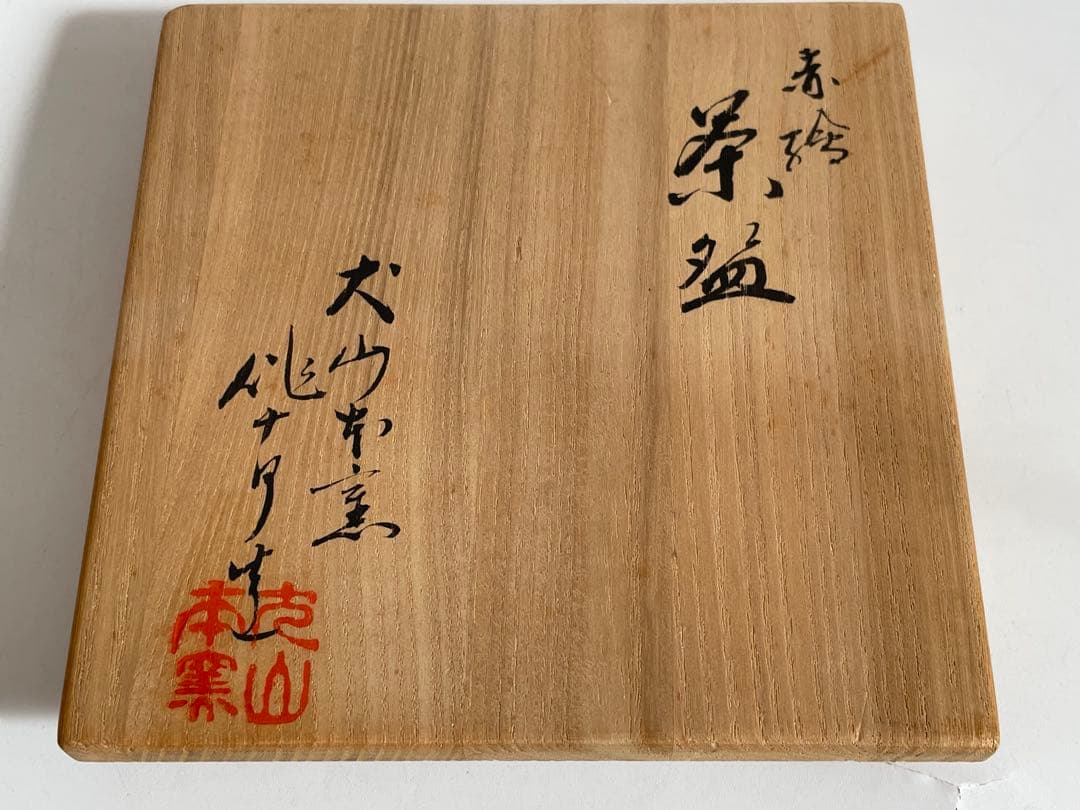 赤繪
茶盌
犬山本窯
作十郎造
犬山
本窯